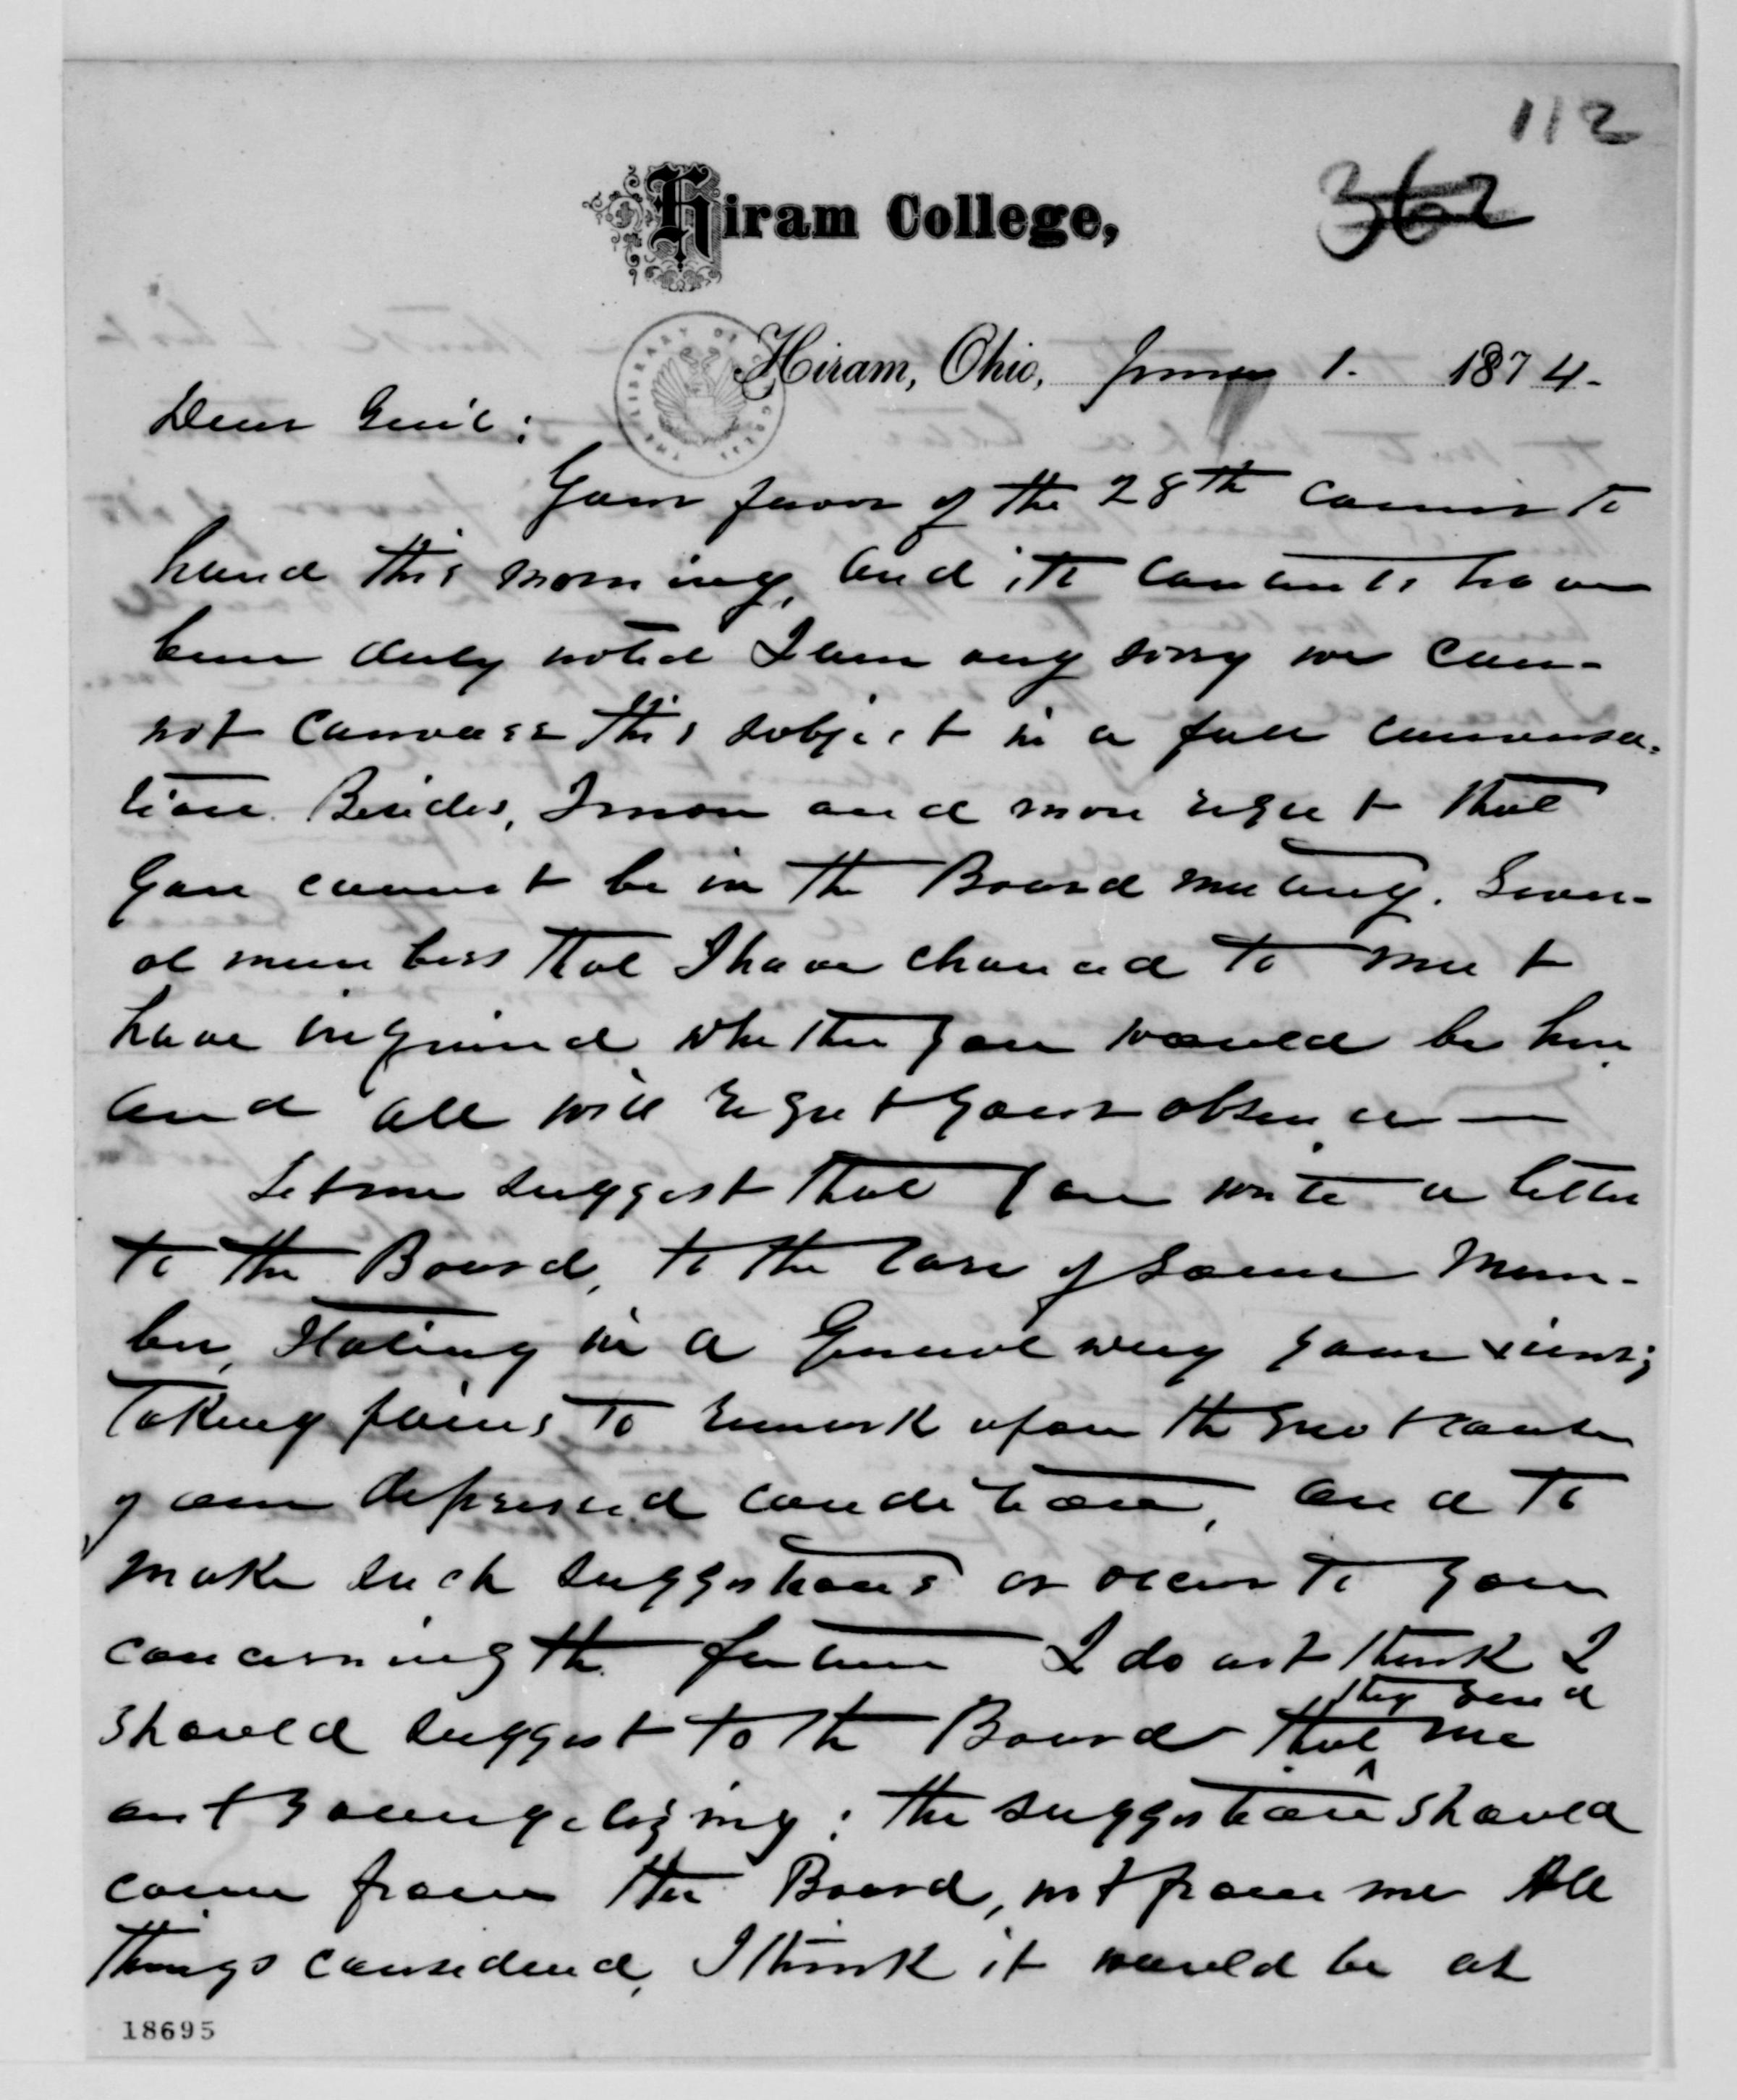 112
362
Hiram College,
Hiram, Ohio, 1. 1874.
Dear Gen'l:
Your favor of the 28th came to
hand this morning, and its contents have
been duly noted I am very sorry we can-
not canvass this subject in a full conversa-
tion. Besides, I more and more regret that
you cannot be in the Board meeting. Sever-
al members that I have chanced to meet
have inquired whether you would be here
and all will regret your absence —
Let me suggest that you write a letter
to the Board, to the care of some mem-
ber, stating in a general way your views;
taking pains to remark upon the great cause
of our depressed condition, and to
make such suggestions as occur to you
concerning the future I do not think I
should suggest to the Board that they send me
out evangelizing: the suggestion should
come from the Board, not from me All
things considered, I think it would be at
18695